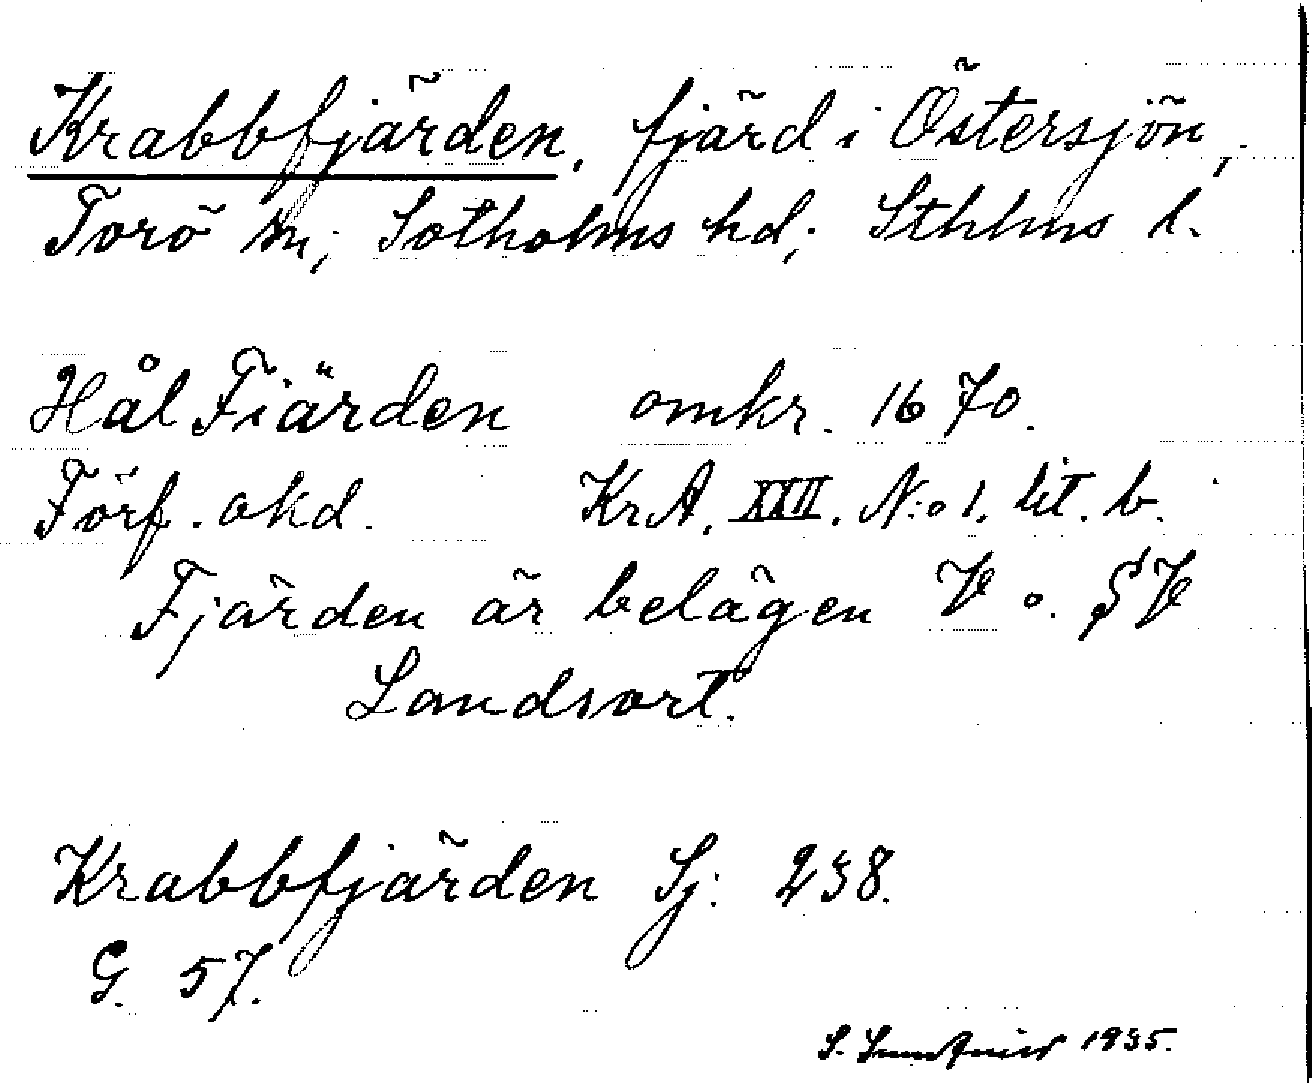 Krabbfjärden, fjärd i Östersjön,
Torö sn, Sotholms hd, Sthlms l.
Hål Fiärden omkr. 1670.
Förf. okd. KrA. XXII. N:o 1. lit. b.
Fjärden är belägen V o. SV
Landsort.
Krabbfjärden Sj: 238.
G. 57.
S. 1935.